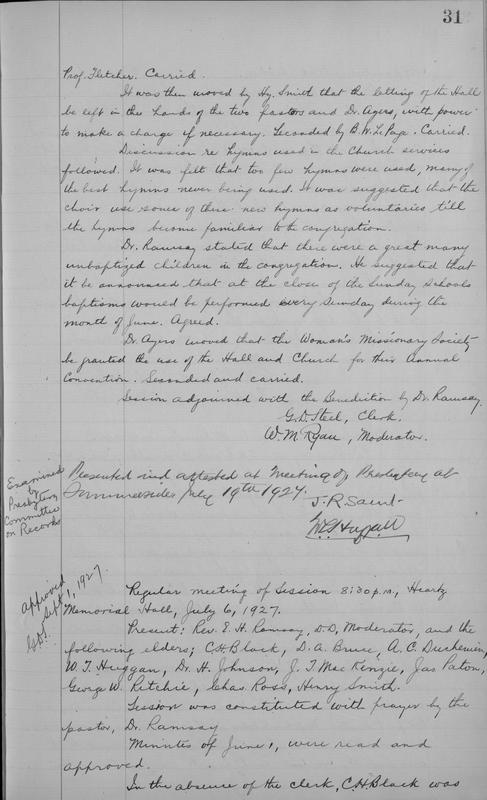 31
Prof. Fletcher. Carried.
It was then moved by Hy. Smith that the letting of the Hall
be left in the hands of the two pastors and Dr. Ayers, with power
to make a charge if necessary. Seconded by B. W. LePage. Carried.
Discussion re hymns used in the Church services
followed. It was felt that too few hymns were used, many of
the best hymns never being used. It was suggested that the
choir use some of these new hymns as voluntaries till
the hymns become familiar to the congregation.
Dr. Ramsay stated that there were a great many
unbaptized children in the congregation. He suggested that
it be announced that at the close of the Sunday Schools
baptisms would be performed every Sunday during the
month of June. Agreed.
Dr. Ayers moved that the Woman's Missionary Society
be granted the use of the Hall and Church for their Annual
Convention. Seconded and carried.
Session adjourned with the Benediction by Dr. Ramsay.
G. D. Steel, Clerk.
W. M. Ryan, Moderator.
Examined
by
Presbytery
Committee
on Records
Presented and attested at Meeting of Presbytery at
Summerside July 19th 1927.
J. R. Saint
Approved
Sept 1, 1927.
Regular meeting of Session 8:30 p.m., Heartz
Memorial Hall, July 6, 1927.
Present: Rev. E. H. Ramsay, D.D, Moderator, and the
following elders; C. H. Black, D. A. Bruce, A. C. Duchemin,
W. T. Huggan, Dr. H. Johnson, J. T. MacKenzie, Jas Paton,
George W. Ritchie, Chas. Ross, Henry Smith.
Session was constituted with prayer by the
pastor, Dr. Ramsay
Minutes of June 1, were read and
approved.
In the absence of the clerk, C. H. Black was